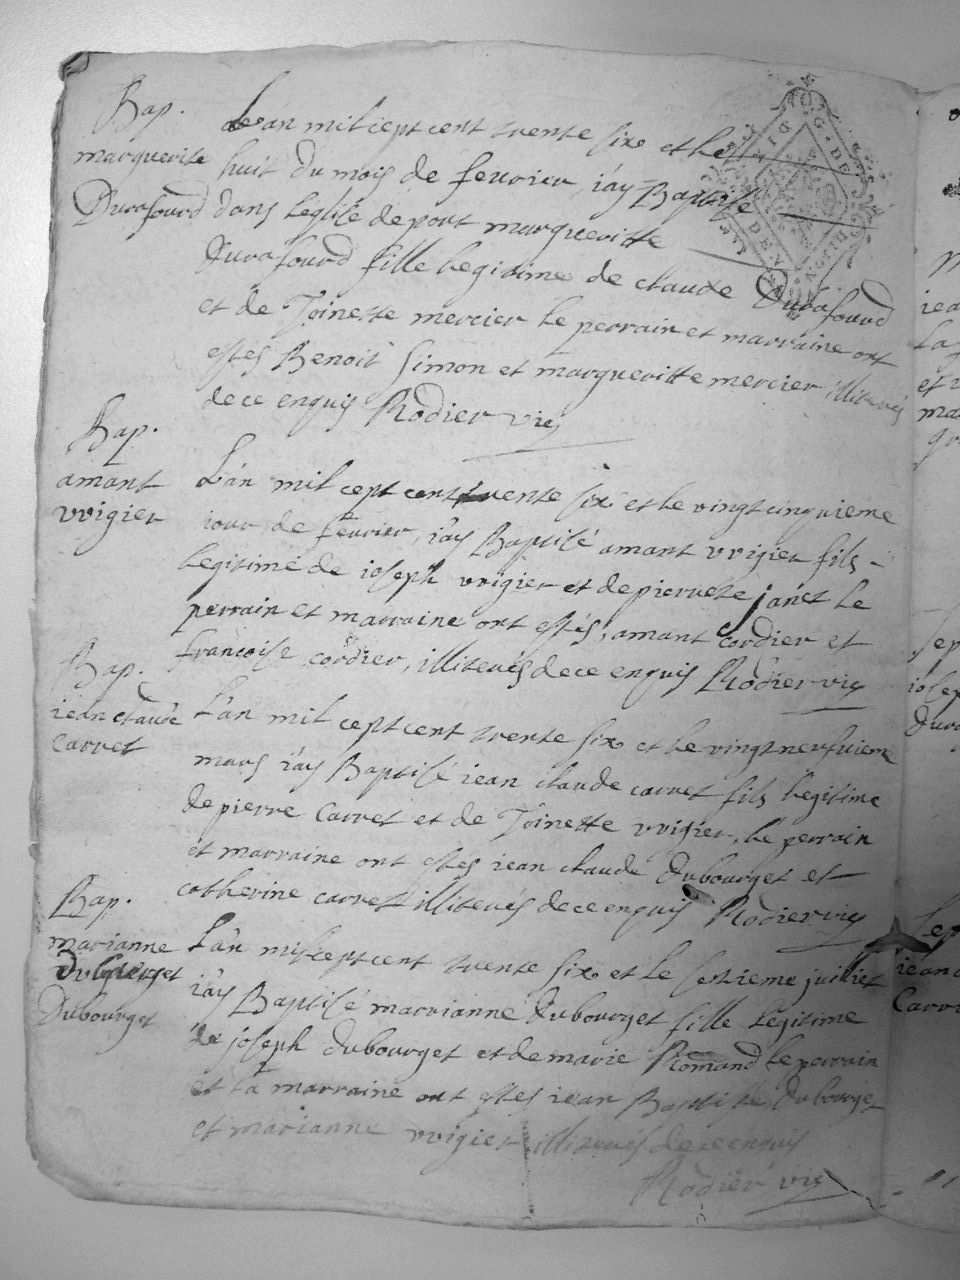 Bap.
marguerite
Durafourd
L'an mil cept cent trente six et le
huit du mois de feuvrier, i'ay Baptisé
dans leglise de port margueritte
durafourd fille legitime de claude Durafourd
et de Toinette mercier le perrain et marraine ont
estés Benoit Simon et margueritte mercier illiterés
de ce enquis Rodier vic
Bap.
amant
vrigier
L'an mil cept cent trente six et le vingtcinquieme
iour de feuvrier, i'ay Baptisé amant vrigier fils
legitime de ioseph vrigier et de pierrete janet le
perrain et marraine ont estés, amant cordier et
francoise cordier, illiterés de ce enquis Rodier vic
Bap.
iean claude
Carret
L'an mil cept cent trente six et le vingt neufuieme
mars i'ay Baptisé iean claude carret fils legitime
de pierre Carret et de Toinette vrigier, le perrain
et marraine ont estes iean claude dubourget et
catherine carret illiterés de ce enquis Rodier vic
Bap.
marianne
Dubourget
L'an mil cept cent trente six et le septieme juilliet
i'ay Baptisé marrianne dubourget fille legitime
de joseph dubourget et de marie Romand le perrain
et la marraine ont estes iean Baptiste dubourget
et marianne vrigier illiterés de ce enquis
Rodier vic